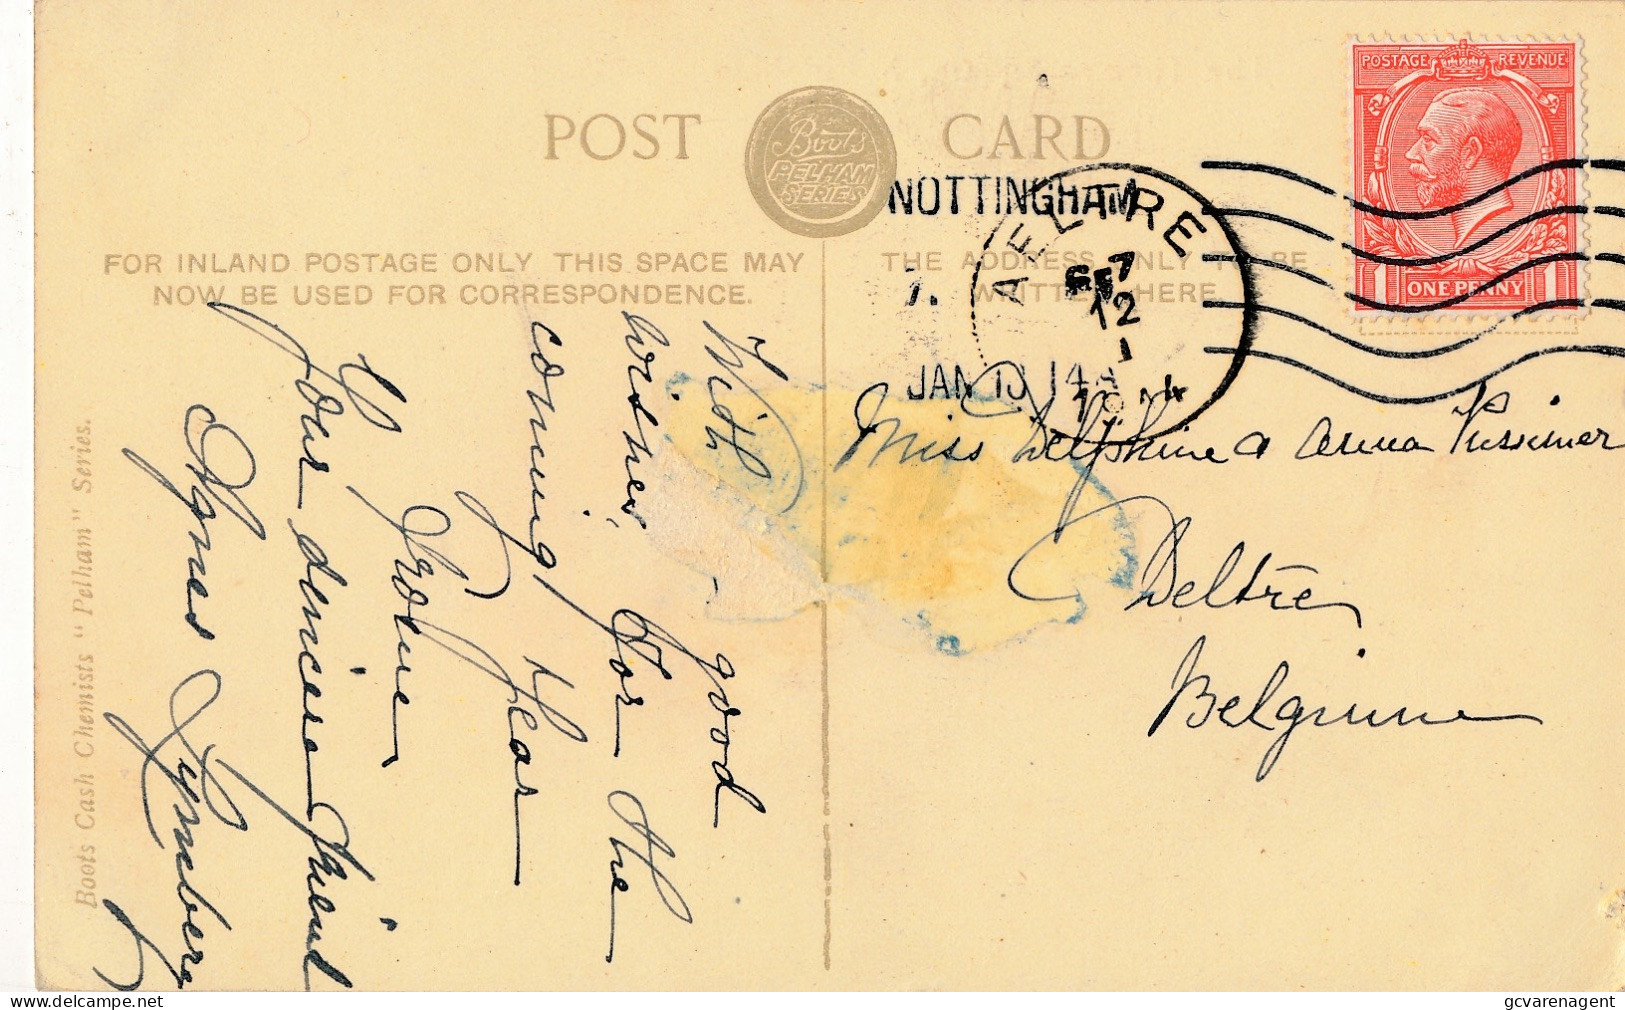 POST CARD
Boots
PELHAM
SERIES
FOR INLAND POSTAGE ONLY THIS SPACE MAY
NOW BE USED FOR CORRESPONDENCE.
THE ADDRESS ONLY TO BE
WRITTEN HERE
POSTAGE REVENUE
1 ONE PENNY 1
NOTTINGHAM
JAN 13 14
AELTRE
12
1
With good
wishes, for the
coming Year
from
Your sincere friend
Agnes
Miss Delphine &
Deltre
Belgium
Boots Cash Chemists "Pelham" Series.
delcampe.net
gcvarenagent